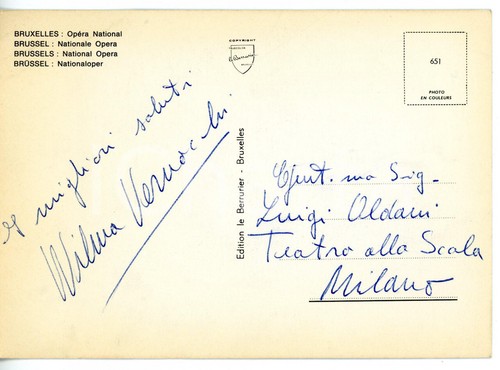 BRUXELLES : Opéra National
BRUSSEL : Nationale Opera
BRUSSELS : National Opera
BRÜSSEL : Nationaloper
COPYRIGHT
651
PHOTO
EN COULEURS
migliori saluti
Wilma Vernocchi
Edition le Berrurier - Bruxelles
Gent.mo Sig.
Luigi Oldani
Teatro alla Scala
Milano